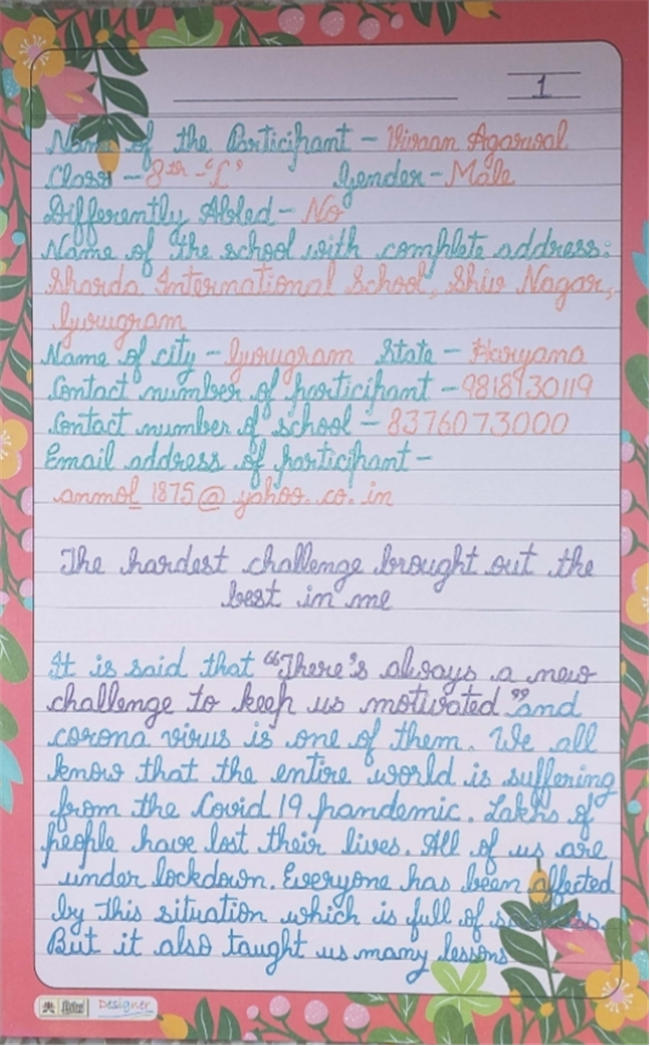 1
Name of the Participant - Vivaan Agarwal
Class - 8th -"C" Gender - Male
Differently Abled - No
Name of the school with complete address:
Sharda International School, Shiv Nagar,
Gurugram
Name of city - Gurugram State - Haryana
Contact number of participant - 9818930119
Contact number of school - 8376073000
Email address of participant -
anmol_1875@yahoo.co.in
The hardest challenge brought out the
best in me
It is said that "There's always a new
challenge to keep us motivated" and
corona virus is one of them. We all
know that the entire world is suffering
from the Covid 19 pandemic. Lakhs of
people have lost their lives. All of us are
under lockdown. Everyone has been affected
by this situation which is full of sadness.
But it also taught us many lessons
Designer